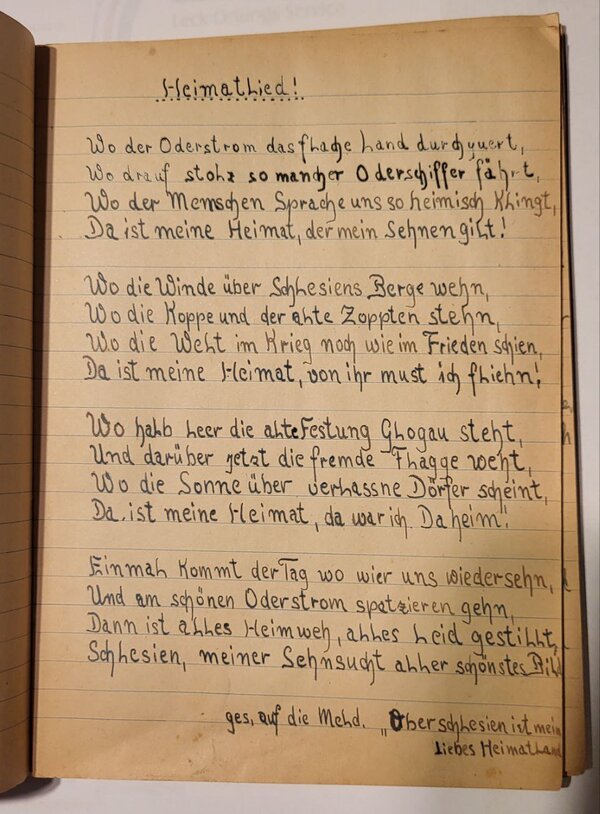 Heimatlied!
Wo der Oderstrom das flache Land durchquert,
Wo drauf stolz so mancher Oderschiffer fährt,
Wo der Menschen Sprache uns so heimisch klingt,
Da ist meine Heimat, der mein Sehnen gilt!
Wo die Winde über Schlesiens Berge wehn,
Wo die Koppe und der alte Zoppten stehn,
Wo die Welt im Krieg noch wie im Frieden schien,
Da ist meine Heimat, von ihr must ich fliehn!
Wo halb leer die alte Festung Glogau steht,
Und darüber jetzt die fremde Flagge weht,
Wo die Sonne über verlassne Dörfer scheint,
Da ist meine Heimat, da war ich Daheim!
Einmal kommt der Tag wo wier uns wiedersehn,
Und am schönen Oderstrom spatzieren gehn,
Dann ist alles Heimweh, alles Leid gestillt,
Schlesien, meiner Sehnsucht aller schönstes Bild
ges, auf die Meld. „Oberschlesien ist mein
liebes Heimatland